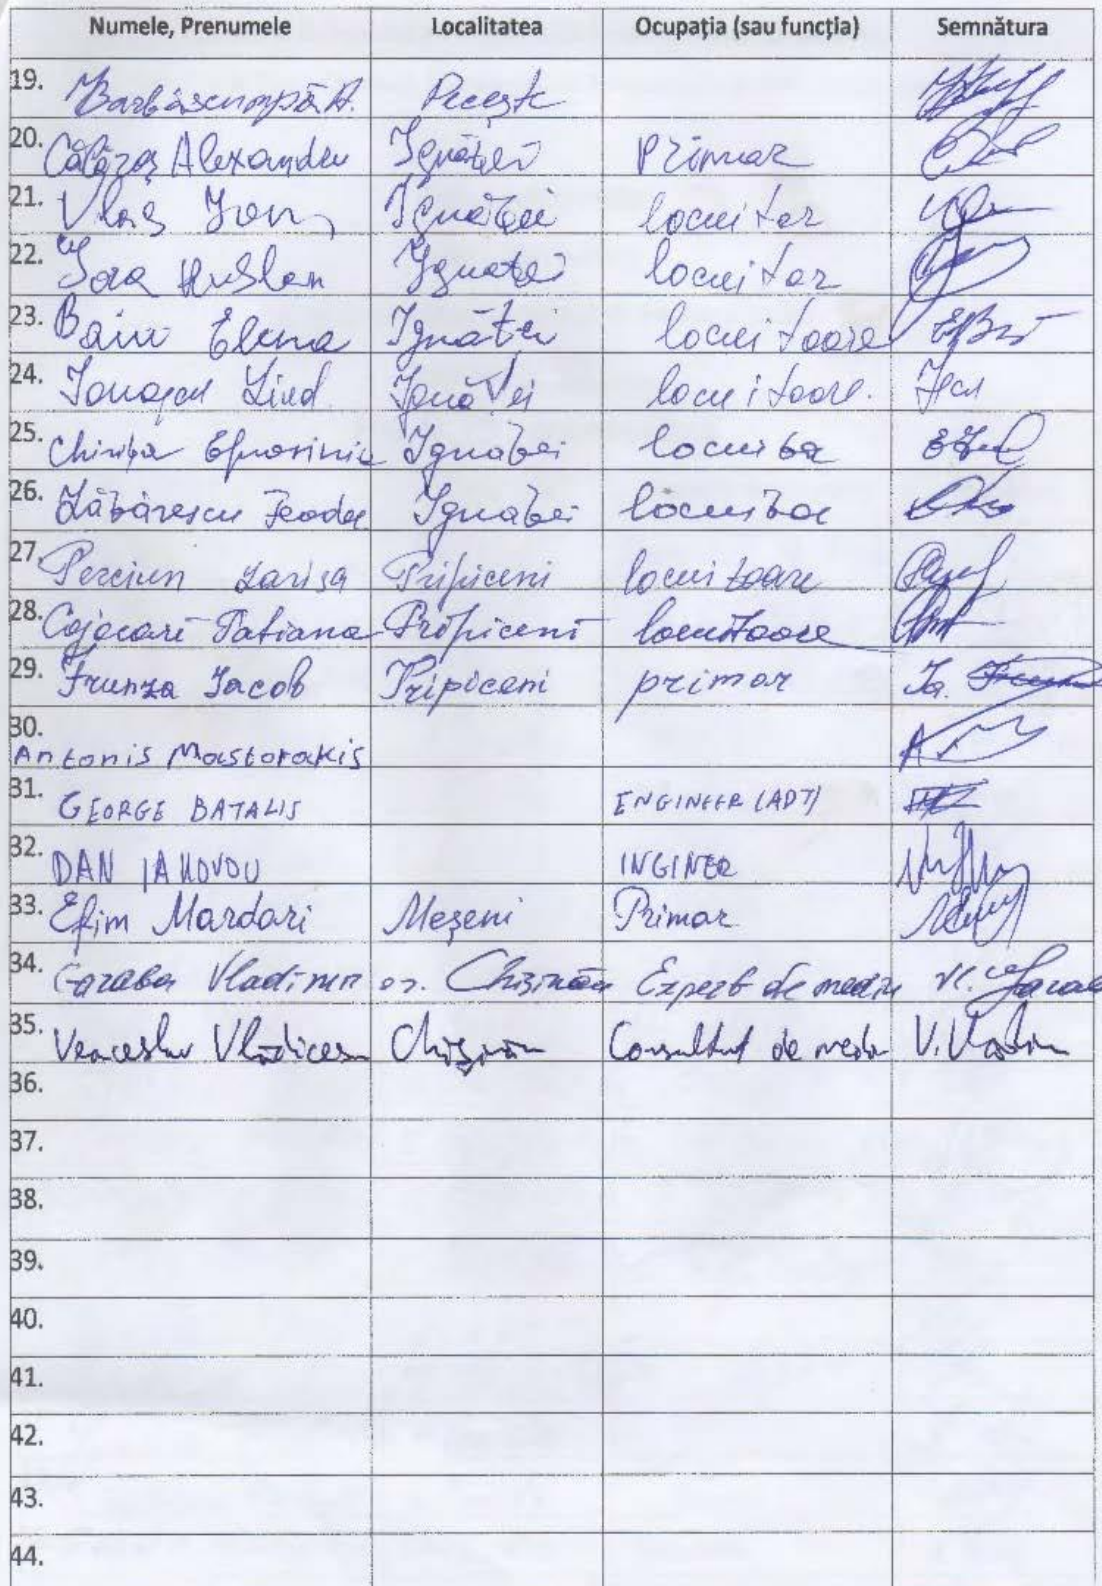 Numele, Prenumele Localitatea Ocupația (sau funcția) Semnătura
19. Barbăscumpă A. Pecește
20. Călăraș Alexandru Ignăței Primar
21. Vlas Ion Ignăței locuitor
22. Țora Ruslan Ignăței locuitor
23. Elena Ignăței locuitoare
24. Ignăței locuitoare.
25. Chirița Efrosinia Ignăței locuitoa
26. Zăbărescu Feodor Ignăței locuitor
27. Perciun Larisa Pripiceni locuitoare
28. Cojocari Tatiana Pripiceni locuitoare
29. Frunza Iacob Pripiceni primar
30. Antonis Mastorakis
31. GEORGE BATALIS ENGINEER (ADT)
32. DAN IAKOVOU INGINER
33. Efim Mardari Meșeni Primar
34. Garaba Vladimir or. Chișinău Expert de mediu
35. Veaceslav Vlădicescu Chișinău Consultant de mediu
36.
37.
38.
39.
40.
41.
42.
43.
44.